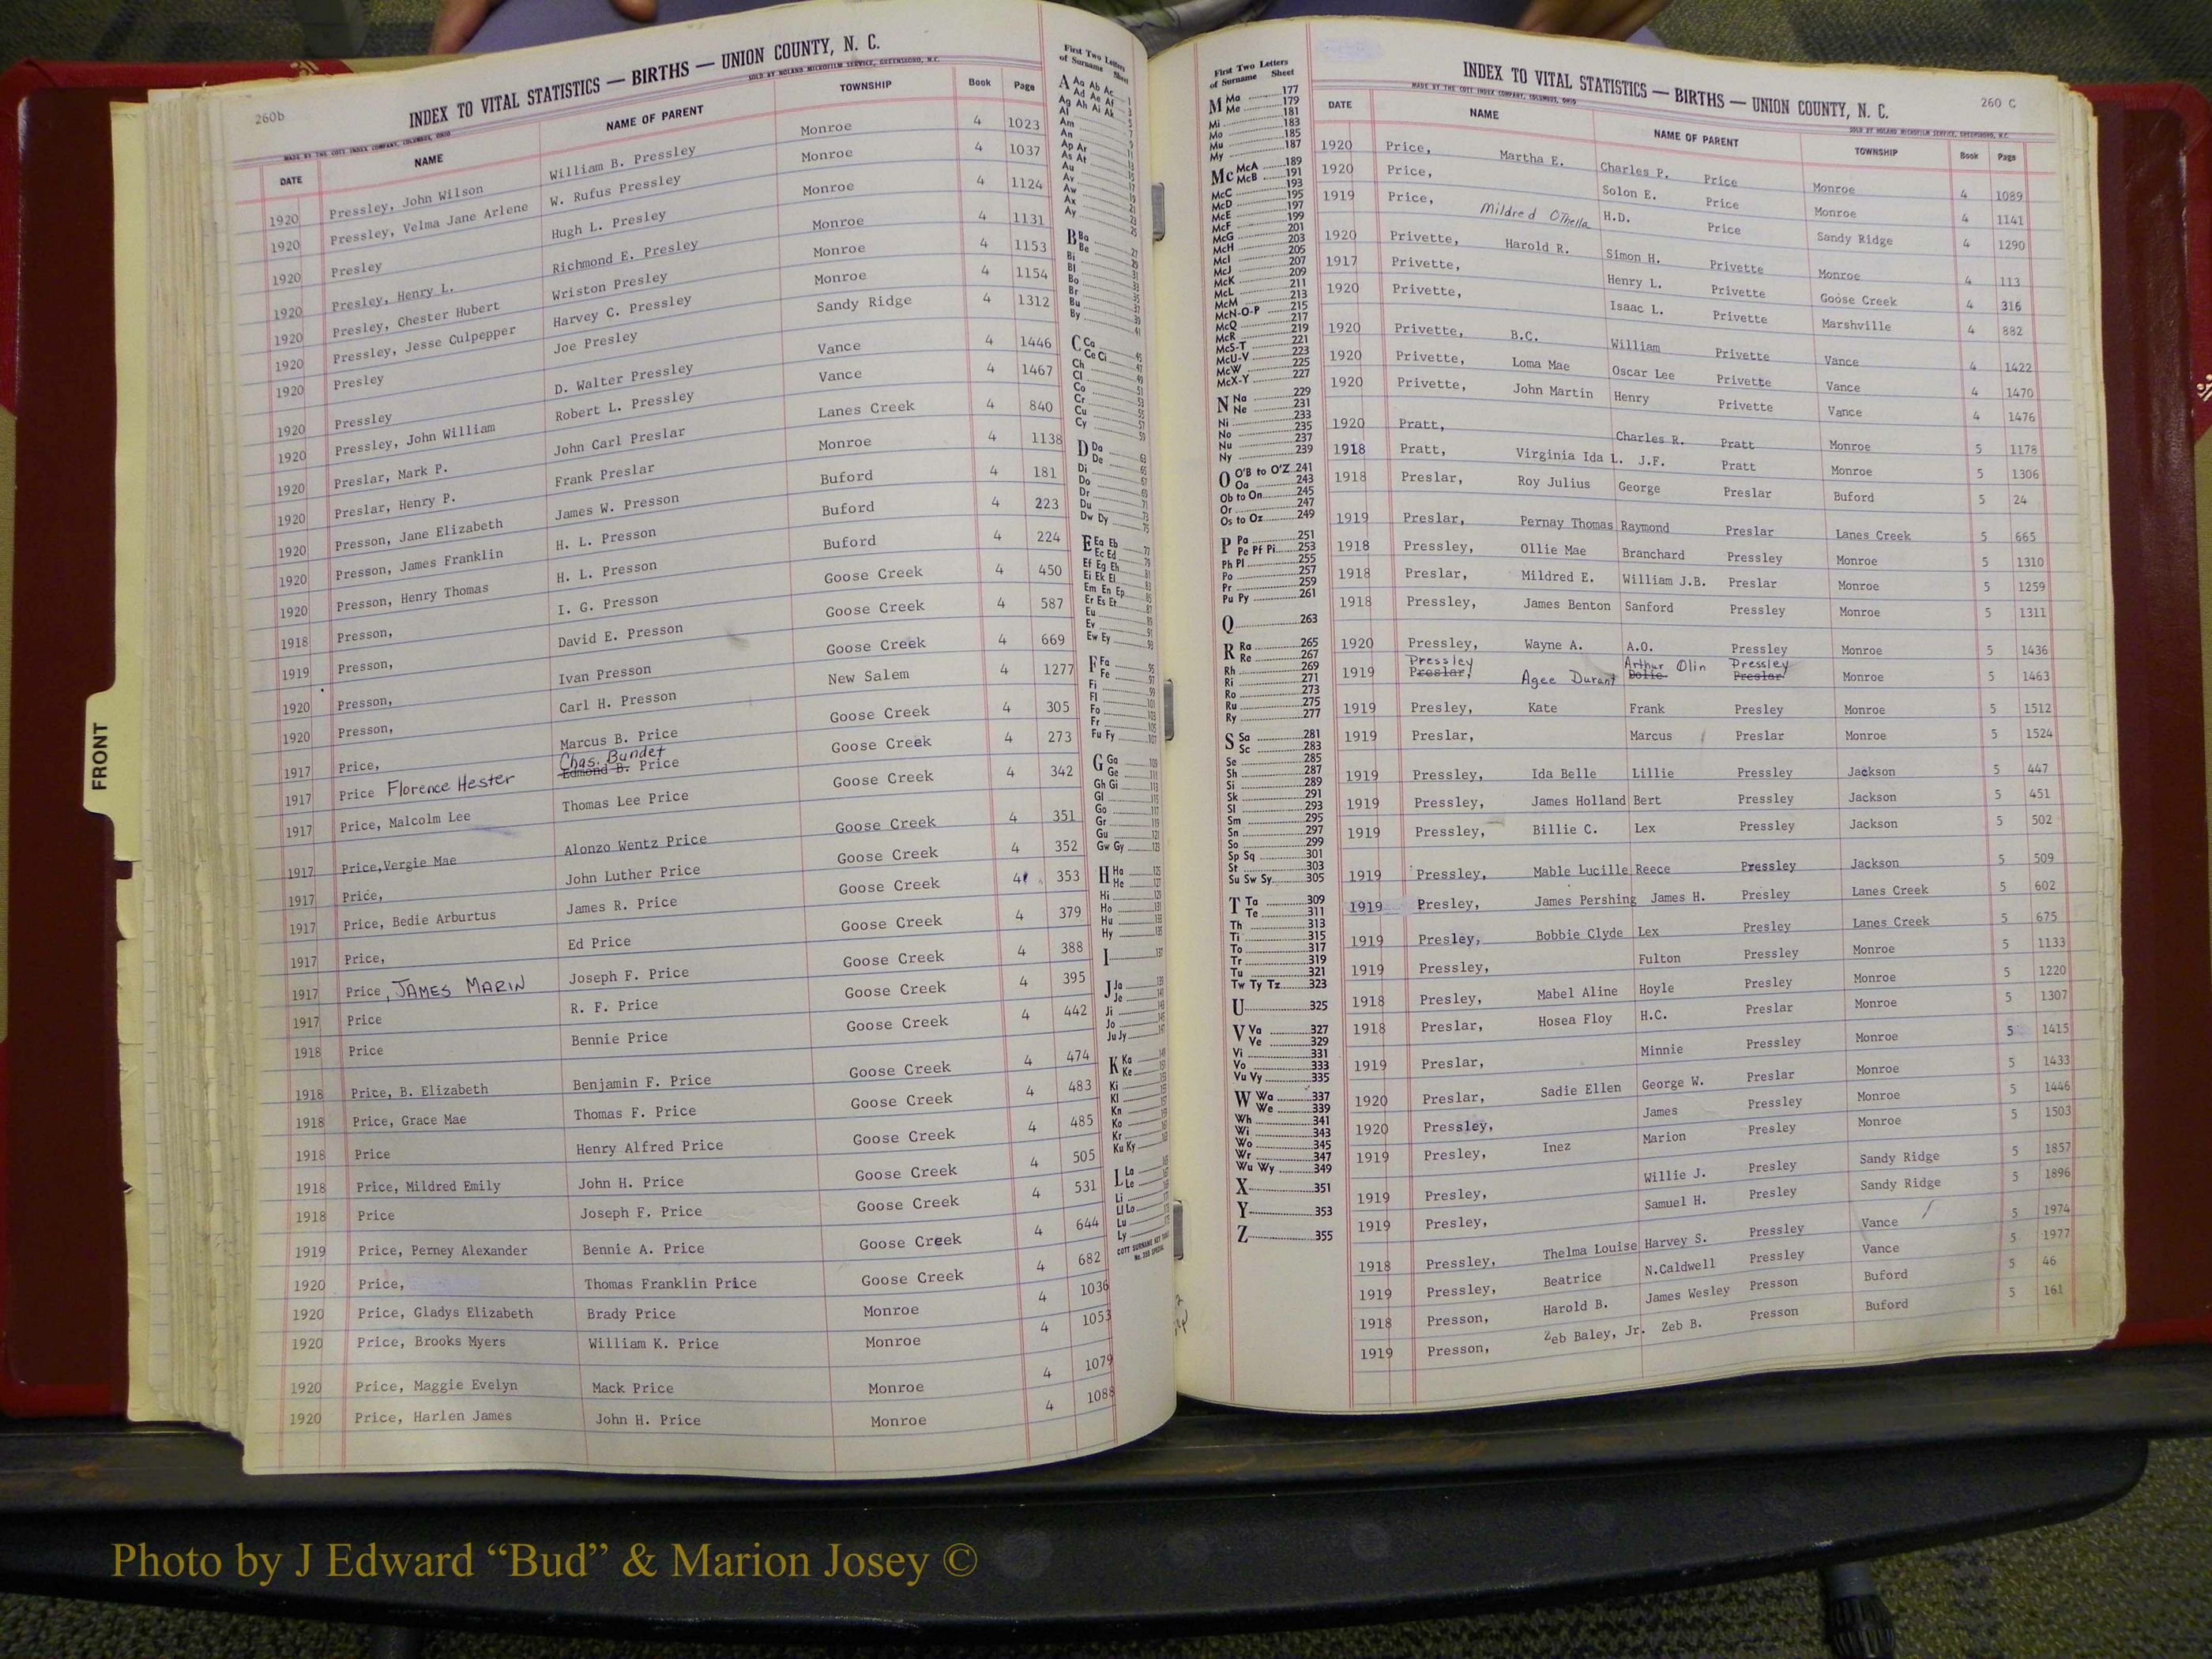 260b
INDEX TO VITAL STATISTICS — BIRTHS — UNION COUNTY, N. C.
MADE BY THE COTT INDEX COMPANY, COLUMBUS, OHIO SOLD BY NOLAND MICROFILM SERVICE, GREENSBORO, N.C.
DATE NAME NAME OF PARENT TOWNSHIP Book Page
1920 Pressley, John Wilson William B. Pressley Monroe 4 1023
1920 Pressley, Velma Jane Arlene W. Rufus Pressley Monroe 4 1037
1920 Presley Hugh L. Presley Monroe 4 1124
1920 Presley, Henry L. Richmond E. Presley Monroe 4 1131
1920 Presley, Chester Hubert Wriston Presley Monroe 4 1153
1920 Pressley, Jesse Culpepper Harvey C. Pressley Monroe 4 1154
1920 Presley Joe Presley Sandy Ridge 4 1312
1920 Pressley D. Walter Pressley Vance 4 1446
1920 Pressley, John William Robert L. Pressley Vance 4 1467
1920 Preslar, Mark P. John Carl Preslar Lanes Creek 4 840
1920 Preslar, Henry P. Frank Preslar Monroe 4 1138
1920 Presson, Jane Elizabeth James W. Presson Buford 4 181
1920 Presson, James Franklin H. L. Presson Buford 4 223
1920 Presson, Henry Thomas H. L. Presson Buford 4 224
1918 Presson, I. G. Presson Goose Creek 4 450
1919 Presson, David E. Presson Goose Creek 4 587
1920 Presson, Ivan Presson Goose Creek 4 669
1920 Presson, Carl H. Presson New Salem 4 1277
1917 Price, Marcus B. Price Goose Creek 4 305
Chas. Bundet
1917 Price Florence Hester Edmond B. Price Goose Creek 4 273
1917 Price, Malcolm Lee Thomas Lee Price Goose Creek 4 342
1917 Price,Vergie Mae Alonzo Wentz Price Goose Creek 4 351
1917 Price, John Luther Price Goose Creek 4 352
1917 Price, Bedie Arburtus James R. Price Goose Creek 4 353
1917 Price, Ed Price Goose Creek 4 379
1917 Price, JAMES MARIN Joseph F. Price Goose Creek 4 388
1917 Price R. F. Price Goose Creek 4 395
1918 Price Bennie Price Goose Creek 4 442
1918 Price, B. Elizabeth Benjamin F. Price Goose Creek 4 474
1918 Price, Grace Mae Thomas F. Price Goose Creek 4 483
1918 Price Henry Alfred Price Goose Creek 4 485
1918 Price, Mildred Emily John H. Price Goose Creek 4 505
1918 Price Joseph F. Price Goose Creek 4 531
1919 Price, Perney Alexander Bennie A. Price Goose Creek 4 644
1920 Price, Thomas Franklin Price Goose Creek 4 682
1920 Price, Gladys Elizabeth Brady Price Monroe 4 1036
1920 Price, Brooks Myers William K. Price Monroe 4 1053
1920 Price, Maggie Evelyn Mack Price Monroe 4 1079
1920 Price, Harlen James John H. Price Monroe 4 1088
FRONT
First Two Letters
of Surname Sheet
A Aa Ab Ac
Ad Ae Af
Ag Ah Ai Ak
Al
Am
An
Ap Ar
As At
Au
Av
Aw
Ax
Ay
B Ba
Be
Bi
Bl
Bo
Br
Bu
By
C Ca
Ce Ci
Ch
Cl
Co
Cr
Cu
Cy
D Da
De
Di
Do
Dr
Du
Dw Dy
E Ea Eb
Ec Ed
Ef Eg Eh
Ei Ek El
Em En Ep
Er Es Et
Eu
Ev
Ew Ey
F Fa
Fe
Fi
Fl
Fo
Fr
Fu Fy
G Ga
Ge
Gh Gi
Gl
Go
Gr
Gu
Gw Gy
H Ha
He
Hi
Ho
Hu
Hy
I
J Ja
Je
Ji
Jo
Ju Jy
K Ka
Ke
Ki
Kl
Kn
Ko
Kr
Ku Ky
L La
Le
Li
Ll Lo
Lu
Ly
First Two Letters
of Surname Sheet
M Ma 177
Me 179
181
Mi 183
Mo 185
Mu 187
My
Mc McA 189
McB 191
193
McC 195
McD 197
McE 199
McF 201
McG 203
McH 205
McI 207
McJ 209
McK 211
McL 213
McM 215
McN-O-P 217
McQ 219
McR 221
McS-T 223
McU-V 225
McW 227
McX-Y
N Na 229
Ne 231
233
Ni 235
No 237
Nu 239
Ny
O O'B to O'Z 241
Oa 243
Ob to On 245
Or 247
Os to Oz 249
P Pa 251
Pe Pf Pi 253
Ph Pl 255
Po 257
Pr 259
Pu Py 261
Q 263
R Ra 265
Re 267
Rh 269
Ri 271
Ro 273
Ru 275
Ry 277
S Sa 281
Sc 283
Se 285
Sh 287
Si 289
Sk 291
Sl 293
Sm 295
Sn 297
So 299
Sp Sq 301
St 303
Su Sw Sy 305
T Ta 309
Te 311
Th 313
Ti 315
To 317
Tr 319
Tu 321
Tw Ty Tz 323
U 325
V Va 327
Ve 329
Vi 331
Vo 333
Vu Vy 335
W Wa 337
We 339
Wh 341
Wi 343
Wo 345
Wr 347
Wu Wy 349
X 351
Y 353
Z 355
260 C
INDEX TO VITAL STATISTICS — BIRTHS — UNION COUNTY, N. C.
MADE BY THE COTT INDEX COMPANY, COLUMBUS, OHIO SOLD BY NOLAND MICROFILM SERVICE, GREENSBORO, N.C.
DATE NAME NAME OF PARENT TOWNSHIP Book Page
1920 Price, Martha E. Charles P. Price Monroe 4 1089
1920 Price, Solon E. Price Monroe 4 1141
1919 Price, Mildred OThella H.D. Price Sandy Ridge 4 1290
1920 Privette, Harold R. Simon H. Privette Monroe 4 113
1917 Privette, Henry L. Privette Goose Creek 4 316
1920 Privette, Isaac L. Privette Marshville 4 882
1920 Privette, B.C. William Privette Vance 4 1422
1920 Privette, Loma Mae Oscar Lee Privette Vance 4 1470
1920 Privette, John Martin Henry Privette Vance 4 1476
1920 Pratt, Charles R. Pratt Monroe 5 1178
1918 Pratt, Virginia Ida L. J.F. Pratt Monroe 5 1306
1918 Preslar, Roy Julius George Preslar Buford 5 24
1919 Preslar, Pernay Thomas Raymond Preslar Lanes Creek 5 665
1918 Pressley, Ollie Mae Branchard Pressley Monroe 5 1310
1918 Preslar, Mildred E. William J.B. Preslar Monroe 5 1259
1918 Pressley, James Benton Sanford Pressley Monroe 5 1311
1920 Pressley, Wayne A. A.O. Pressley Monroe 5 1436
Pressley Arthur Olin Pressley
1919 Preslar, Agee Durant Dolie Preslar Monroe 5 1463
1919 Presley, Kate Frank Presley Monroe 5 1512
1919 Preslar, Marcus Preslar Monroe 5 1524
1919 Pressley, Ida Belle Lillie Pressley Jackson 5 447
1919 Pressley, James Holland Bert Pressley Jackson 5 451
1919 Pressley, Billie C. Lex Pressley Jackson 5 502
1919 Pressley, Mable Lucille Reece Pressley Jackson 5 509
1919 Presley, James Pershing James H. Presley Lanes Creek 5 602
1919 Presley, Bobbie Clyde Lex Presley Lanes Creek 5 675
1919 Pressley, Fulton Pressley Monroe 5 1133
1918 Presley, Mabel Aline Hoyle Presley Monroe 5 1220
1918 Preslar, Hosea Floy H.C. Preslar Monroe 5 1307
1919 Preslar, Minnie Pressley Monroe 5 1415
1920 Preslar, Sadie Ellen George W. Preslar Monroe 5 1433
1920 Pressley, James Pressley Monroe 5 1446
1919 Presley, Inez Marion Presley Monroe 5 1503
1919 Presley, Willie J. Presley Sandy Ridge 5 1857
1919 Presley, Samuel H. Presley Sandy Ridge 5 1896
1918 Pressley, Thelma Louise Harvey S. Pressley Vance 5 1974
1919 Pressley, Beatrice N.Caldwell Pressley Vance 5 1977
1918 Presson, Harold B. James Wesley Presson Buford 5 46
1919 Presson, Zeb Baley, Jr. Zeb B. Presson Buford 5 161
Photo by J Edward “Bud” & Marion Josey ©